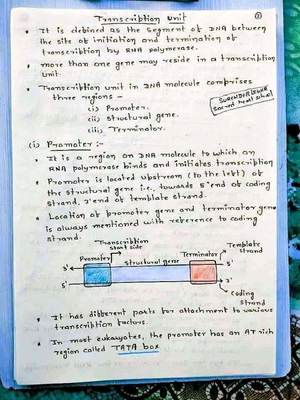 Transcription Unit
①
• It is defined as the segment of DNA between
the site of initiation and termination of
transcription by RNA polymerase.
• more than one gene may reside in a transcription
unit.
• Transcription unit in DNA molecule comprises
three regions -
(i) Promoter.
(ii) Structural gene.
(iii) Terminator.
(i) Promoter :-
• It is a region on DNA molecule to which an
RNA polymerase binds and initiates transcription
• Promoter is located upstream (to the left) of
the structural gene i.e., towards 5' end of coding
strand, 3' end of template strand.
• Location of promoter gene and terminator gene
is always mentioned with reference to coding
strand.
Transcription
start side
Template
strand
Promoter
Structural gene
Terminator
3'
5'
5'
3'
Coding
strand
• It has different parts for attachment to various
transcription factors.
• In most eukaryotes, the promoter has an AT rich
region called TATA box